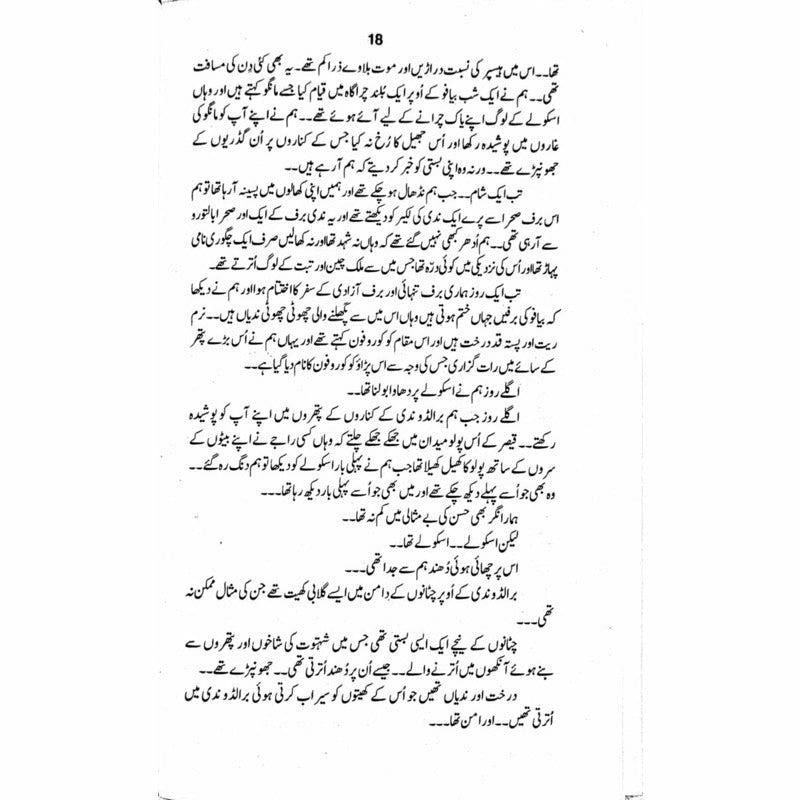 18
تھا۔۔ اس میں ہیسپر کی نسبت دراڑیں اور موت بلاوے ذرا کم تھے۔ یہ بھی کئی دِن کی مسافت
تھی۔۔ ہم نے ایک شب بیافو کے اُوپر ایک بُلند چراگاہ میں قیام کیا جسے مانگو کہتے ہیں اور وہاں
اسکولے کے لوگ اپنے یاک چرانے کے لیے آئے ہوئے تھے۔۔ ہم نے اپنے آپ کو مانگو کی
غاروں میں پوشیدہ رکھا اور اُس جھیل کا رُخ نہ کیا جس کے کناروں پر اُن گڈریوں کے
جھونپڑے تھے۔۔ ورنہ وہ اپنی بستی کو خبر کر دیتے کہ ہم آ رہے ہیں۔۔
تب ایک شام۔۔ جب ہم نڈھال ہو چکے تھے اور ہمیں اپنی کھالوں میں پسینہ آ رہا تھا تو ہم
اس برف صحرا سے پرے ایک ندی کی لکیر کو دیکھتے تھے اور یہ ندی برف کے ایک اور صحرا بالتورو
سے آ رہی تھی۔۔ ہم اُدھر کبھی نہیں گئے تھے کہ وہاں نہ شہد تھا اور نہ کھالیں صرف ایک چگوری نامی
پہاڑ تھا اور اُس کی نزدیکی میں کوئی درّہ تھا جس میں سے ملک چین اور تبت کے لوگ اُترتے تھے۔
تب ایک روز ہماری برف تنہائی اور برف آزادی کے سفر کا اختتام ہوا اور ہم نے دیکھا
کہ بیافو کی برفیں جہاں ختم ہوتی ہیں وہاں اس میں سے پگھلنے والی چھوٹی چھوٹی ندیاں ہیں۔۔ نرم
ریت اور پستہ قد درخت ہیں اور اس مقام کو کوروفون کہتے تھے اور یہاں ہم نے اُس بڑے پتھر
کے سائے میں رات گزاری جس کی وجہ سے اس پڑاؤ کو کوروفون کا نام دیا گیا ہے۔۔
اگلے روز ہم نے اسکولے پر دھاوا بولنا تھا۔۔
اگلے روز جب ہم برالڈو ندی کے کناروں کے پتھروں میں اپنے آپ کو پوشیدہ
رکھتے۔۔ قیصر کے اُس پولو میدان میں جھکے جھکے چلتے کہ وہاں کسی راجے نے اپنے بیٹوں کے
سروں کے ساتھ پولو کا کھیل کھیلا تھا جب ہم نے پہلی بار اسکولے کو دیکھا تو ہم دنگ رہ گئے۔۔
وہ بھی جو اُسے پہلے دیکھ چکے تھے اور میں بھی جو اُسے پہلی بار دیکھ رہا تھا۔۔۔
ہمارا نگر بھی حسن کی بے مثالی میں کم نہ تھا۔۔
لیکن اسکولے۔۔ اسکولے تھا۔۔
اس پر چھائی ہوئی دُھند ہم سے جدا تھی۔۔۔
برالڈو ندی کے اُوپر چٹانوں کے دامن میں ایسے گلابی کھیت تھے جن کی مثال ممکن نہ
تھی۔۔۔
چٹانوں کے نیچے ایک ایسی بستی تھی جس میں شہتوت کی شاخوں اور پتھروں سے
بنے ہوئے آنکھوں میں اُترنے والے۔۔ جیسے اُن پر دُھند اُترتی تھی۔۔ جھونپڑے تھے۔۔
درخت اور ندیاں تھیں جو اُس کے کھیتوں کو سیراب کرتی ہوئی برالڈو ندی میں
اُترتی تھیں۔۔ اور امن تھا۔۔۔